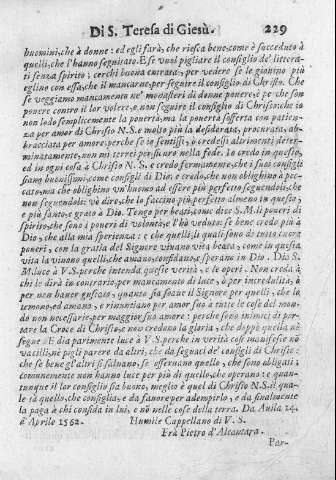 Di S. Teresa di Giesù. 229
huomini, che à donne: ed egli farà, che riesca bene, come è succeduto à
quelli, che l'hanno seguitato. E se vuol pigliare il consiglio de' lettera-
ti senza spirito; cerchi buona entrata, per vedere se le giovino più
eglino con essa, che il mancarne, per seguire il consiglio di Christo. Che
se veggiamo mancamento ne' monasteri di donne povere, è pe che son
povere contro il lor volere, e non seguire il consiglio di Christo: che io
non lodo semplicemente la povertà, ma la povertà sofferta con patienza
per amor di Christo N. S. e molto più la desiderata, procurata, ab-
bracciata per amore, perche se io sentissi, ò credessi altrimenti deter-
minatamente, non mi terrei per sicuro nella fede. Io credo in questo,
ed in ogni cosa à Christo N. S. e credo fermamente, che i suoi consigli
siano buonissimi, come consigli di Dio: e credo, che non oblighino à pec-
cato, ma che oblighino vn'huomo ad essere più perfetto seguendoli, che
non seguendoli: vò dire, che lo faccino più perfetto almeno in questo,
e più santo, e grato à Dio. Tengo per beati, come dice S. M. li poveri di
spirito, che sono i poveri di volontà, e l'hò veduto: se bene credo più à
Dio, che alla mia sperienza: e che quelli, li quali sono di tutto cuore
poveri, con la gratia del Signore vivano vita beata, come in questa
vita la vivono quelli, che amano, confidano, e sperano in Dio. Dia S.
M. luce à V. S. perche intenda queste verità, e le operi. Non creda à
chi le dirà in contrario, per mancamento di luce, ò per incredulità, ò
per non haver gustato, quanto sia soave il Signore per quelli, che lo
temono, ed amano, e rinuntiano per amor suo à tutte le cose del mon-
do non necessarie, per maggior suo amore: perche sono inimici di por-
tare la Croce di Christo, e non credono la gloria, che doppò quella nè
segue. E dia parimente luce à V. S. perche in verità così manifeste nò
vacilli, nè pigli parere da altri, che da seguaci de' consigli di Christo:
che se bene gl'altri si salvano, se osservano quello, che sono obligati;
comunemente non hanno luce per più di quello, che operano: e quan-
tunque il lor consiglio sia buono, meglio è quel di Christo N. S. il qua-
le sà quello, che consiglia, e dà favore per adempirlo, e dà finalmente
la paga à chi confida in lui, e nõ nelle cose della terra. Da Auila 14.
d'Aprile 1562. Humile Cappellano di V. S.
Frà Pietro d'Alcantara.
Par-